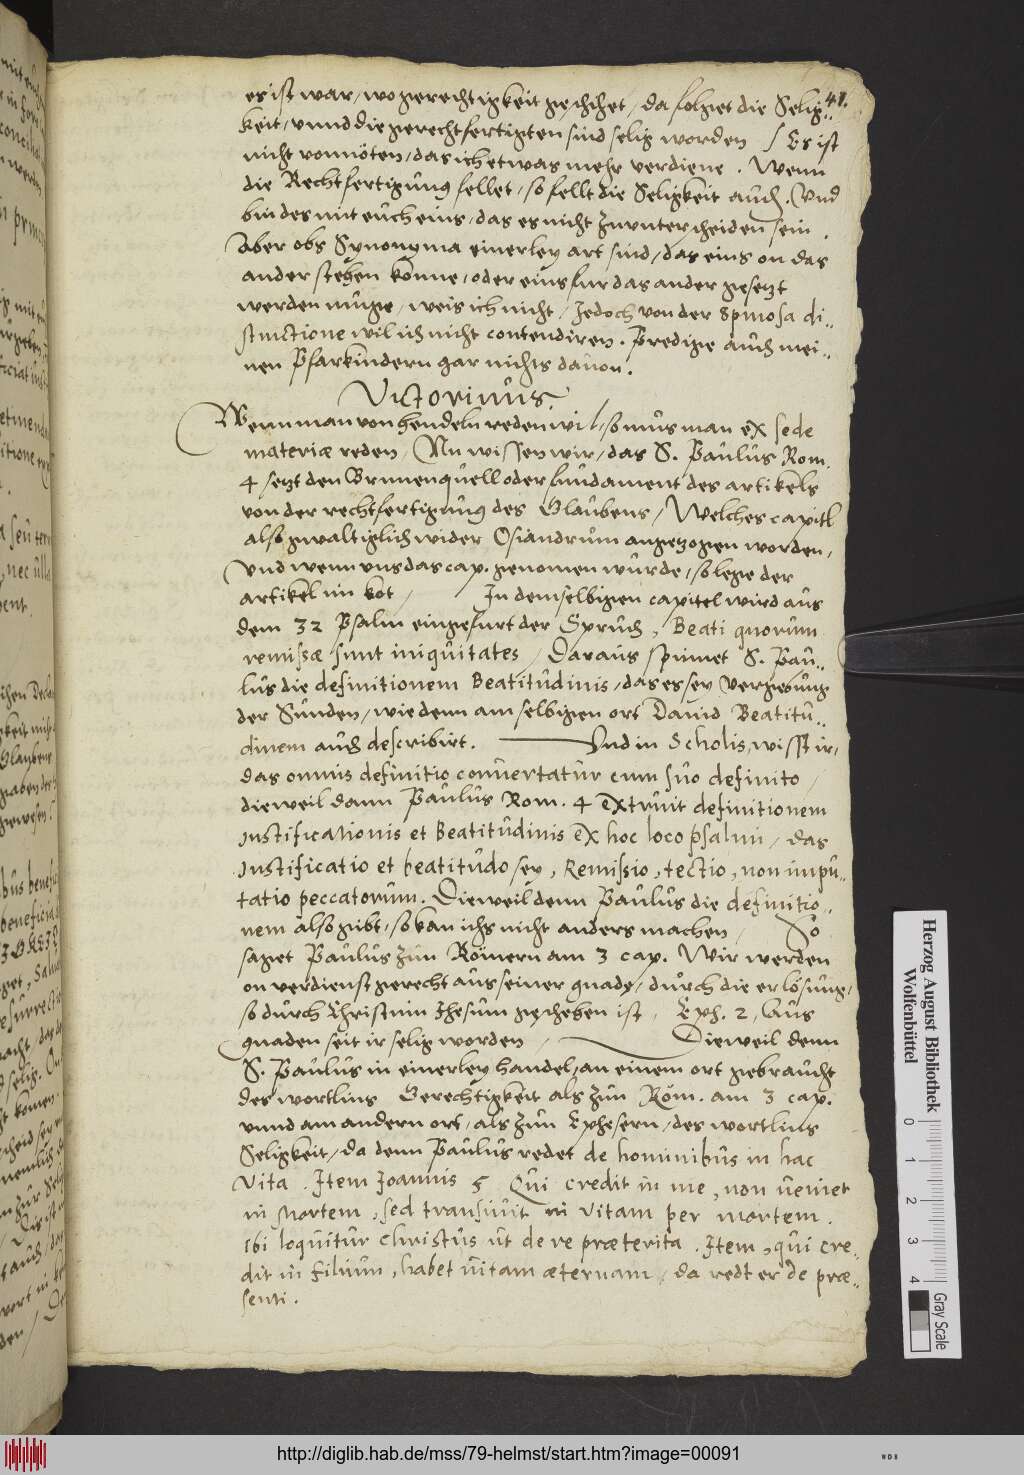 41.
es ist war, wo gerechtigkeit geschihet, da folget die Selig„
keit, unnd die gerechtfertigten sind selig worden / Es ist
nicht vonnöten, das ich etwas mehr verdiene. Wenn
die Rechtfertigung fellet, so fellt die Seligkeit auch. Und
bin des mit euch eins, das es nicht zuunterscheiden sein.
Aber obs Synonyma einerley art sind, das eins on das
ander stehen könne, oder eins fur das ander gesetzt
werden müge, weis ich nicht, Jedoch von der Spinosa di„
stinctione wil ich nicht contendiren. Predige auch mei„
nen Pfarkindern gar nichts davon.
Victorinus.
Wenn man von hendeln reden wil, so mus man ex sede
materiæ reden, Nu wissen wir, das S. Paulus Rom.
4 setzt den Brunenquell oder fundament des artikels
von der rechtfertigung des Glaubens, Welches capitl
also gwaltiglich wider Osiandrum angezogen worden,
Und wenn uns das cap. genomen würde, so lege der
artikel im kot, In demselbigen capitel wird aus
dem 32 Psalm eingefurt der Spruch, Beati quorum
remissæ sunt iniquitates, Daraus spinnet S. Pau„
lus die definitionem Beatitudinis, das es sey Vergebung
der Sunden, wie denn am selbigen ort David Beatitu„
dinem auch describirt. Und in Scholis, wisst ir,
das omnis definitio convertatur cum suo definito,
dieweil dann Paulus Rom. 4 extruit definitionem
Iustificationis et Beatitudinis ex hoc loco psalmi, das
Iustificatio et beatitudo sey, Remissio, tectio, non impu„
tatio peccatorum. Dieweil denn Paulus die definitio„
nem also gibt, so kan ichs nicht anders machen, So
saget Paulus zun Römern am 3 cap. Wir werden
on verdienst gerecht aus seiner gnade, durch die erlösung,
so durch Christum Jhesum geschehen ist, Eph. 2, Aus
gnaden seit ir selig worden, Dieweil denn
S. Paulus in einerley handel, an einem ort gebraucht
des wortlins Gerechtigkeit als zun Röm. am 3 cap.
unnd am andern ort, als zun Ephesern, des wortlins
Seligkeit, da denn Paulus redet de hominibus in hac
vita. Item Joannis 5 Qui credit in me, non veniet
in mortem, sed transivit in vitam per mortem.
ibi loquitur Christus ut de re præterita. Item, qui cre„
dit in filium, habet vitam æternam, da redt er de præ„
senti.
Herzog August Bibliothek
Wolfenbüttel
0 1 2 3 4
Gray Scale
http://diglib.hab.de/mss/79-helmst/start.htm?image=00091